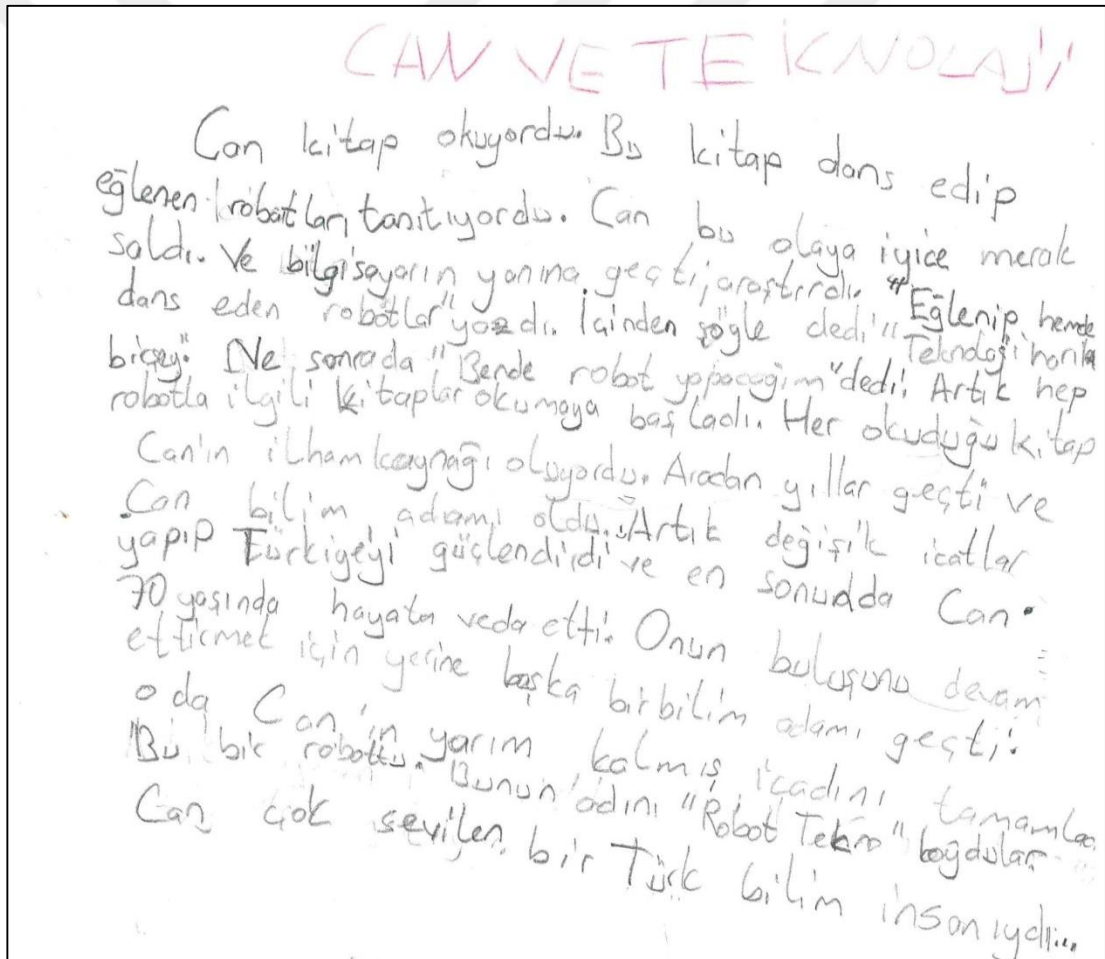 CAN VE TEKNOLAJİ
Can kitap okuyordu. Bu kitap dans edip
eğlenen robotları tanıtıyordu. Can bu olaya iyice merak
saldı. Ve bilgisayarın yanına geçti, araştırdı. "Eğlenip hemde
dans eden robotlar" yazdı. İçinden şöyle dedi "Teknoloği harika
bişey". Ne sonrada "Bende robot yapacağım" dedi. Artık hep
robotla ilgili kitaplar okumaya başladı. Her okuduğu kitap
Can'ın ilham kaynağı oluyordu. Aradan yıllar geçti ve
Can bilim adamı oldu. Artık değişik icatlar
yapıp Türkiyeyi güçlendirdi ve en sonudda Can
70 yaşında hayata veda etti. Onun buluşunu devam
ettirmet için yerine başka birbilim adamı geçti.
o da Can'ın yarım kalmış icadını
Bu bir robottu. Bunun adını "Robot Tekno" koydular
Can çok sevilen bir Türk bilim insanıydı...